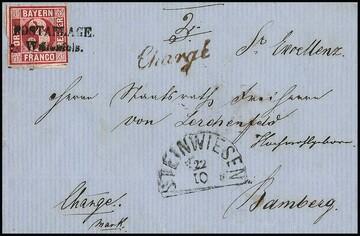 BAYERN
FRANCO
POSTABLAGE.
Wallenfels.
2r.
Chargé
Sr Excellenz.
Herrn Staatsrath Freiherrn
von Lerchenfeld
Hochwohlgeboren
STEINWIESEN
22
10
Charge.
Bamberg.